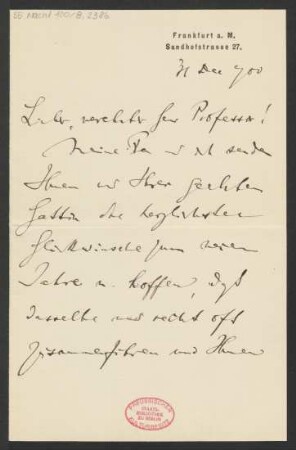 Frankfurt a. M.
Sandhofstrasse 27.
31 Dec 900
Lieber, verehrter Herr Professor!
Meine Frau u ich senden
Ihnen u Ihrer geehrten
Gattin die herzlichsten
Glückwünsche zum neuen
Jahre u. hoffen, daß
dasselbe uns recht oft
zusammenführen und Ihnen